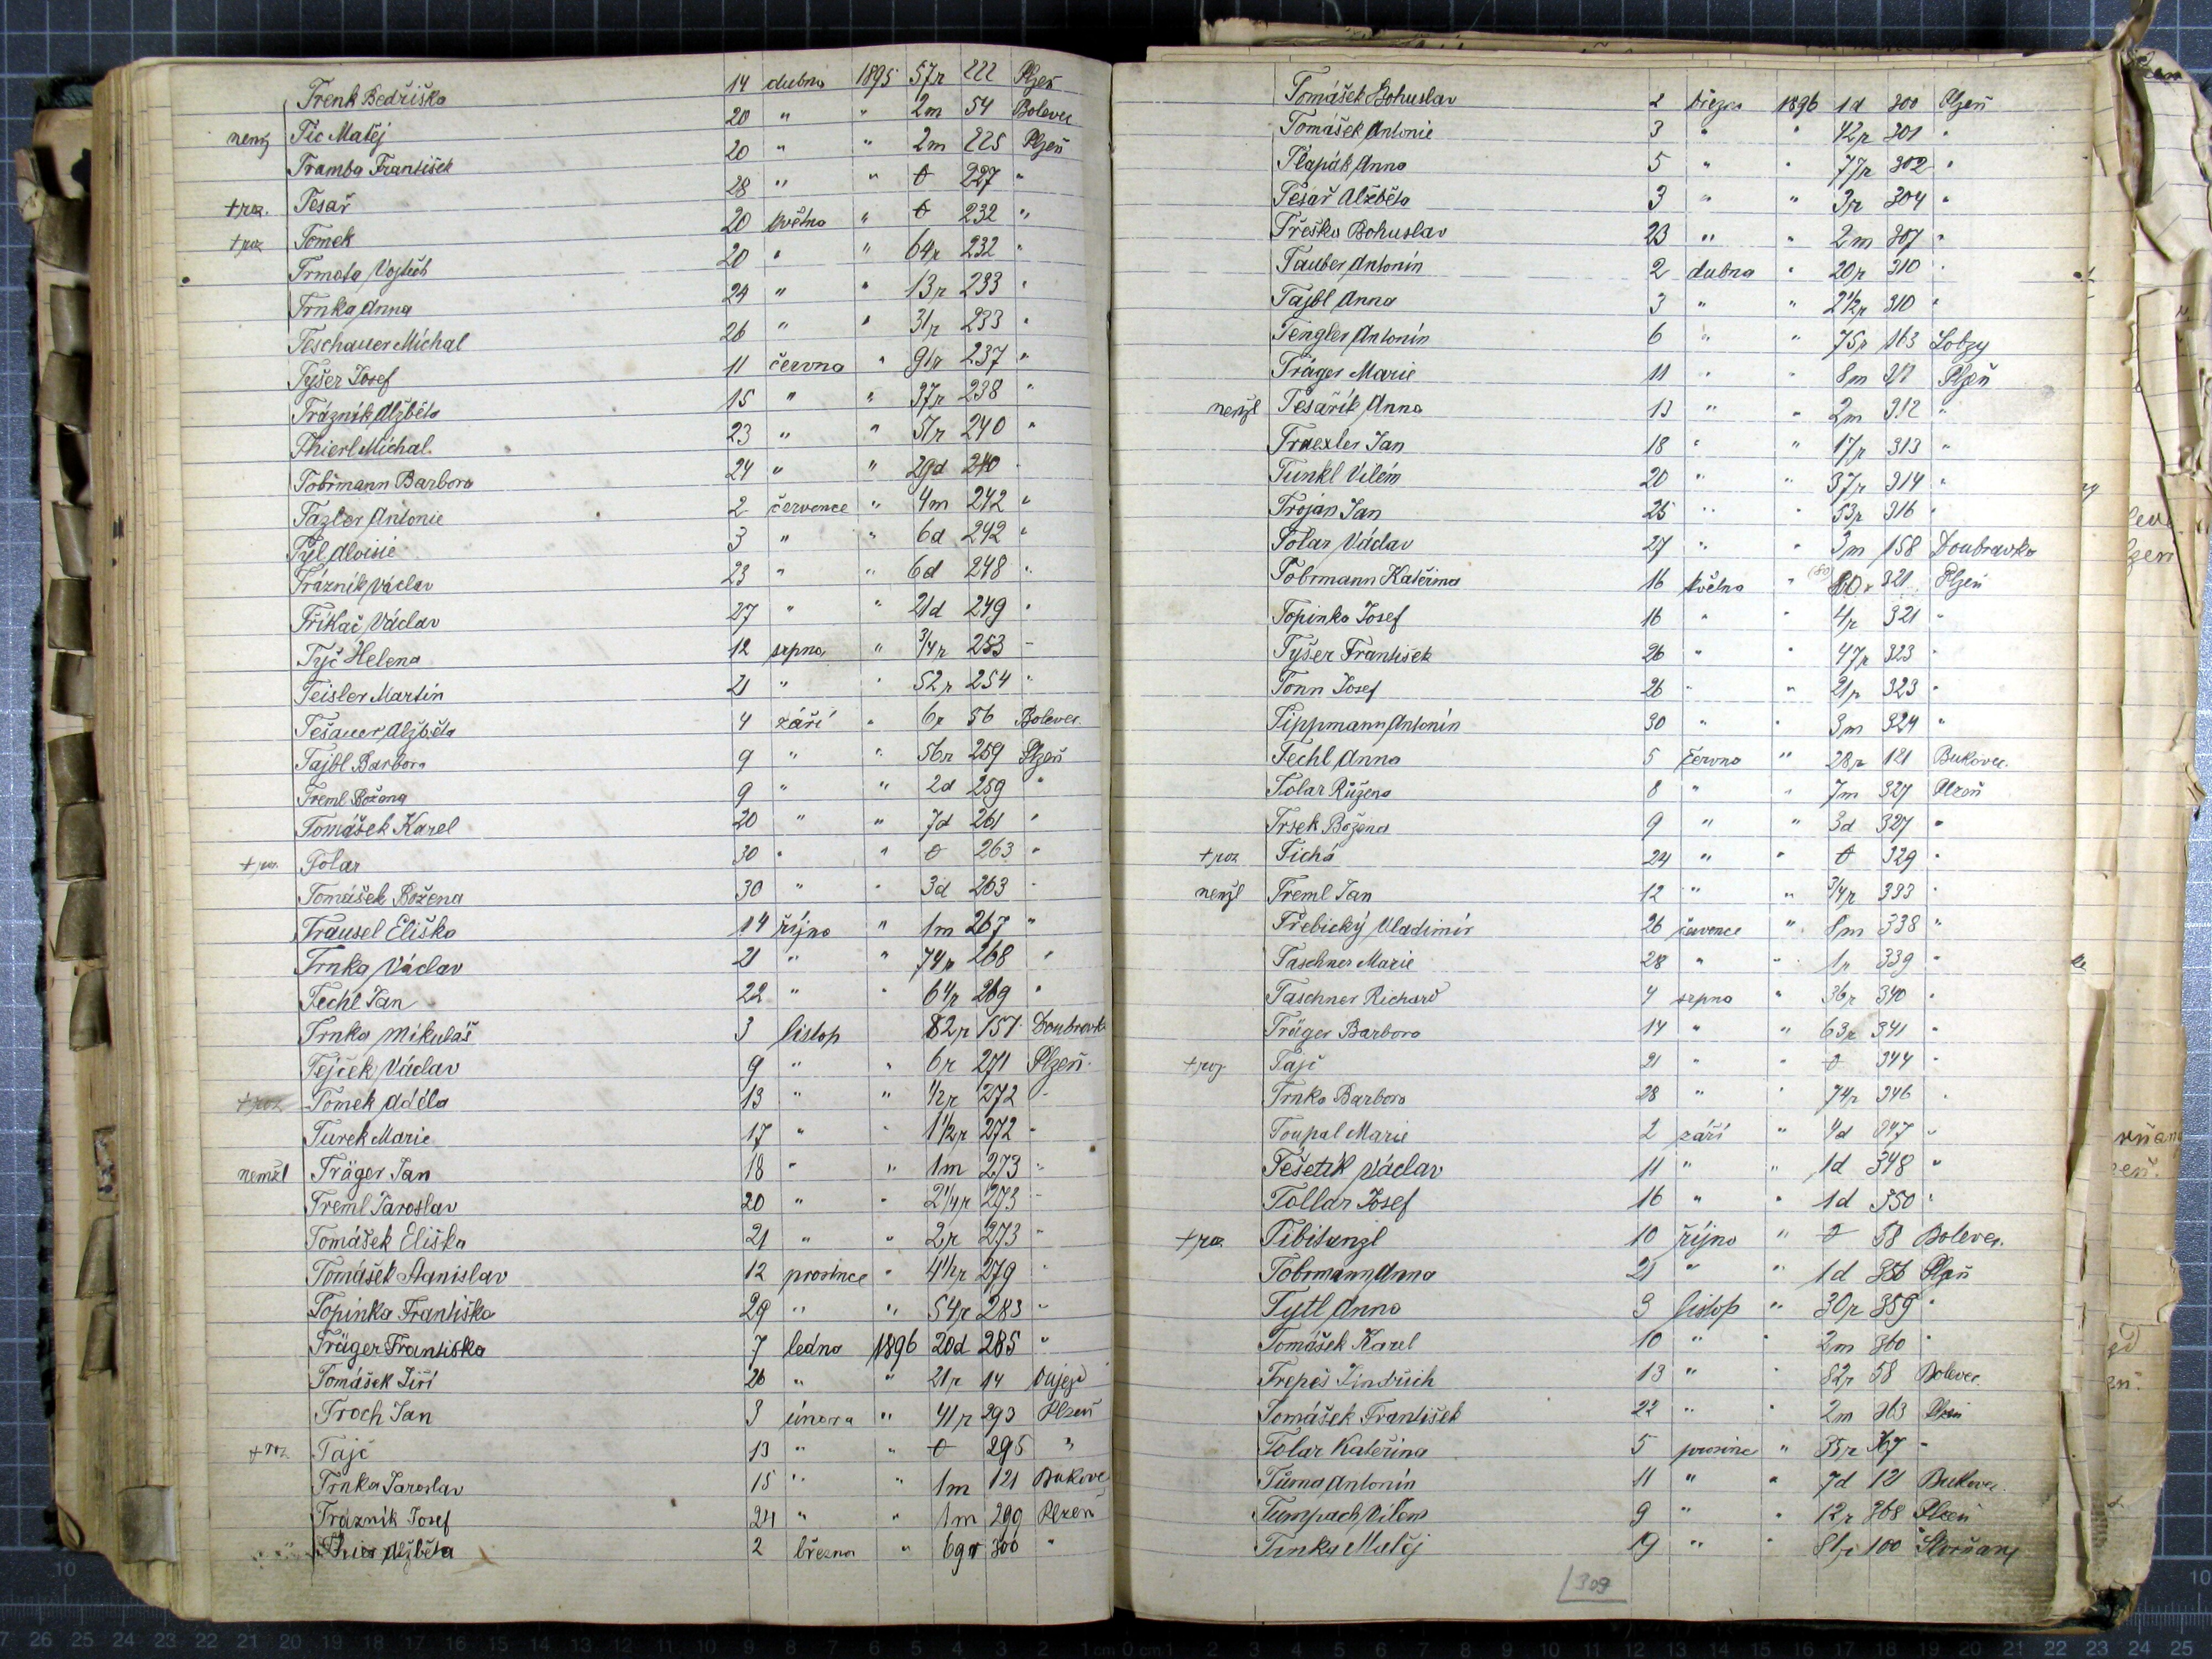 Trenk Bedřiška 14 dubna 1895 57r 222 Plzeň
Tic Matěj 20 " " 2m 54 Bolevec
Tramba František 20 " " 2m 225 Plzeň
+ roz. Tesař 28 " " 0 227 "
+ roz Tomek 20 května " 0 232 "
Trmota Vojtěch 20 " " 64r 232 "
Trnka Anna 24 " " 13r 233 "
Teschauer Michal 26 " " 31r 233 "
Tyšer Josef 11 června " 91r 237 "
Trázník Alžběta 15 " " 37r 238 "
Thierl Michal. 23 " " 51r 240 "
Tobrmann Barbora 24 " " 29d 240 "
Tazler Antonie 2 července " 4m 242 "
Tyl Aloisie 3 " " 6d 242 "
Trázník Václav 23 " " 6d 248 "
Třikač Václav 27 " " 21d 249 "
Tyč Helena 12 srpna " 3/4r 253 "
Teisler Martin 21 " " 52r 254 "
Tešauer Alžběta 4 září " 6r 56 Bolevec.
Tajbl Barbora 9 " " 56r 259 Plzeň
Treml Božena 9 " " 2d 259 "
Tomášek Karel 20 " " 7d 261 "
+ roz. Tolar 30 " " 0 263 "
Tomášek Božena 30 " " 3d 263 "
Trausel Eliška 14 října " 1m 267 "
Trnka Václav 21 " " 74r 268 "
Techl Jan 22 " " 64r 269 "
Trnka Mikuláš 3 listop 82r 157 Doubravka
Tejček Václav 9 " " 6r 271 Plzeň.
+ roz Tomek Adéla 13 " " 1/2r 272 "
Turek Marie 17 " " 1 1/2r 272 "
nemžl Träger Jan 18 " " 1m 273 "
Treml Jaroslav 20 " " 2 1/4r 273 "
Tomášek Eliška 21 " " 2r 273 "
Tomášek Stanislav 12 prosince " 4 1/2r 279 "
Topinka Františka 29 " " 54r 283 "
Träger Františka 7 ledna 1896 20d 285 "
Tomášek Jiří 26 " " 21r 14 Újezd
Troch Jan 3 února " 41r 293 Plzeň
+ roz Tajč 13 " " 0 295 "
Trnka Jaroslav 15 " " 1m 121 Bukovec
Trázník Josef 24 " " 1m 299 Plzeň
Alžběta 2 března " 69r 300 "
Tomášek Bohuslav 2 března 1896 1d 300 Plzeň
Tomášek Antonie 3 " " 42r 301 "
Tlapák Anna 5 " " 77r 302 "
Tesař Alžběta 3 " " 3r 304 "
Treška Bohuslav 23 " " 2m 307 "
Tauber Antonín 2 dubna " 20r 310 "
Tajbl Anna 3 " " 2 1/2r 310 "
Tengler Antonín 6 " " 75r 163 Lobzy
Träger Marie 11 " " 8m 311 Plzeň
nemžl Tesařík Anna 13 " " 2m 312 "
Traexler Jan 18 " " 17r 313 "
Tunkl Vilém 20 " " 37r 314 "
Trojan Jan 25 " " 53r 316 "
Tolar Václav 27 " " 3m 158 Doubravka
Tobrmann Kateřina 16 května " (80) 80r 321 Plzeň
Topinka Josef 16 " " 4r 321 "
Tyšer František 26 " " 47r 323 "
Tonn Josef 26 " " 21r 323 "
Tippmann Antonín 30 " " 3m 324 "
Techl Anna 5 června " 28r 121 Bukovec.
Tolar Růžena 8 " " 7m 327 Plzeň
Trsek Božena 9 " " 3d 327 "
+ roz Tichá 24 " " 0 329 "
nemžl Treml Jan 12 " " 3/4r 333 "
Třebický Vladimír 26 července " 8m 338 "
Taschner Marie 28 " " 1r 339 "
Taschner Richard 4 srpna " 36r 340 "
Träger Barbora 14 " " 63r 341 "
+ roz. Tajč 21 " " 0 344 "
Trnka Barbora 28 " " 74r 346 "
Toupal Marie 2 září " 4d 347 "
Tešetík Václav 11 " " 1d 348 "
Tollar Josef 16 " " 1d 350 "
+ roz Tibitanzl 10 října " 0 58 Bolevec.
Tobrmann Anna 21 " " 1d 356 Plzeň
Tytl Anna 3 listop " 30r 359 "
Tomášek Karel 10 " " 2m 360 "
Trepeš Jindřich 13 " " 82r 58 Bolevec.
Tomášek František 22 " " 2m 363 Plzeň
Tolar Kateřina 5 prosince " 35r 367 "
Tůma Antonín 11 " " 7d 121 Bukovec.
Tumpach Vilém 9 " " 12r 368 Plzeň
Trnka Matěj 19 " " 81r 100 Skvrňany
309